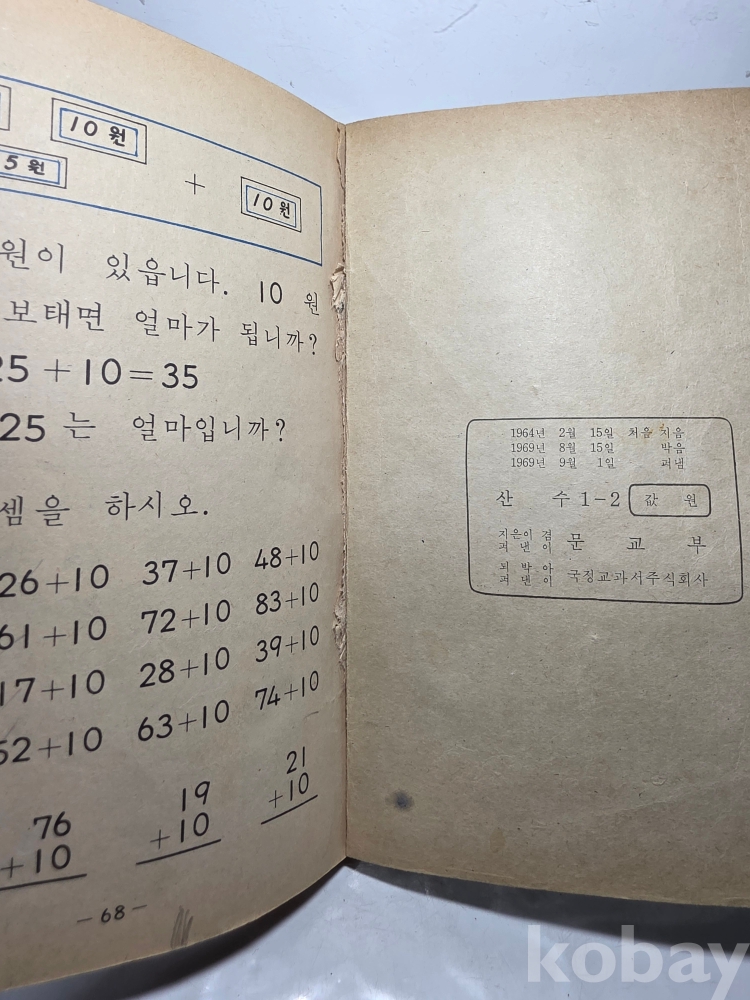 10원
5원
+
10원
원이 있읍니다. 10 원
보태면 얼마가 됩니까?
25+10=35
25 는 얼마입니까?
셈을 하시오.
26+10 37+10 48+10
61+10 72+10 83+10
17+10 28+10 39+10
52+10 63+10 74+10
76 19 21
+10 +10 +10
-68-
1964년 2월 15일 처음 지음
1969년 8월 15일 박음
1969년 9월 1일 펴냄
산 수 1-2 값 원
지은이 겸
펴 낸 이 문 교 부
되 박 아
펴 낸 이 국정교과서주식회사
kobay